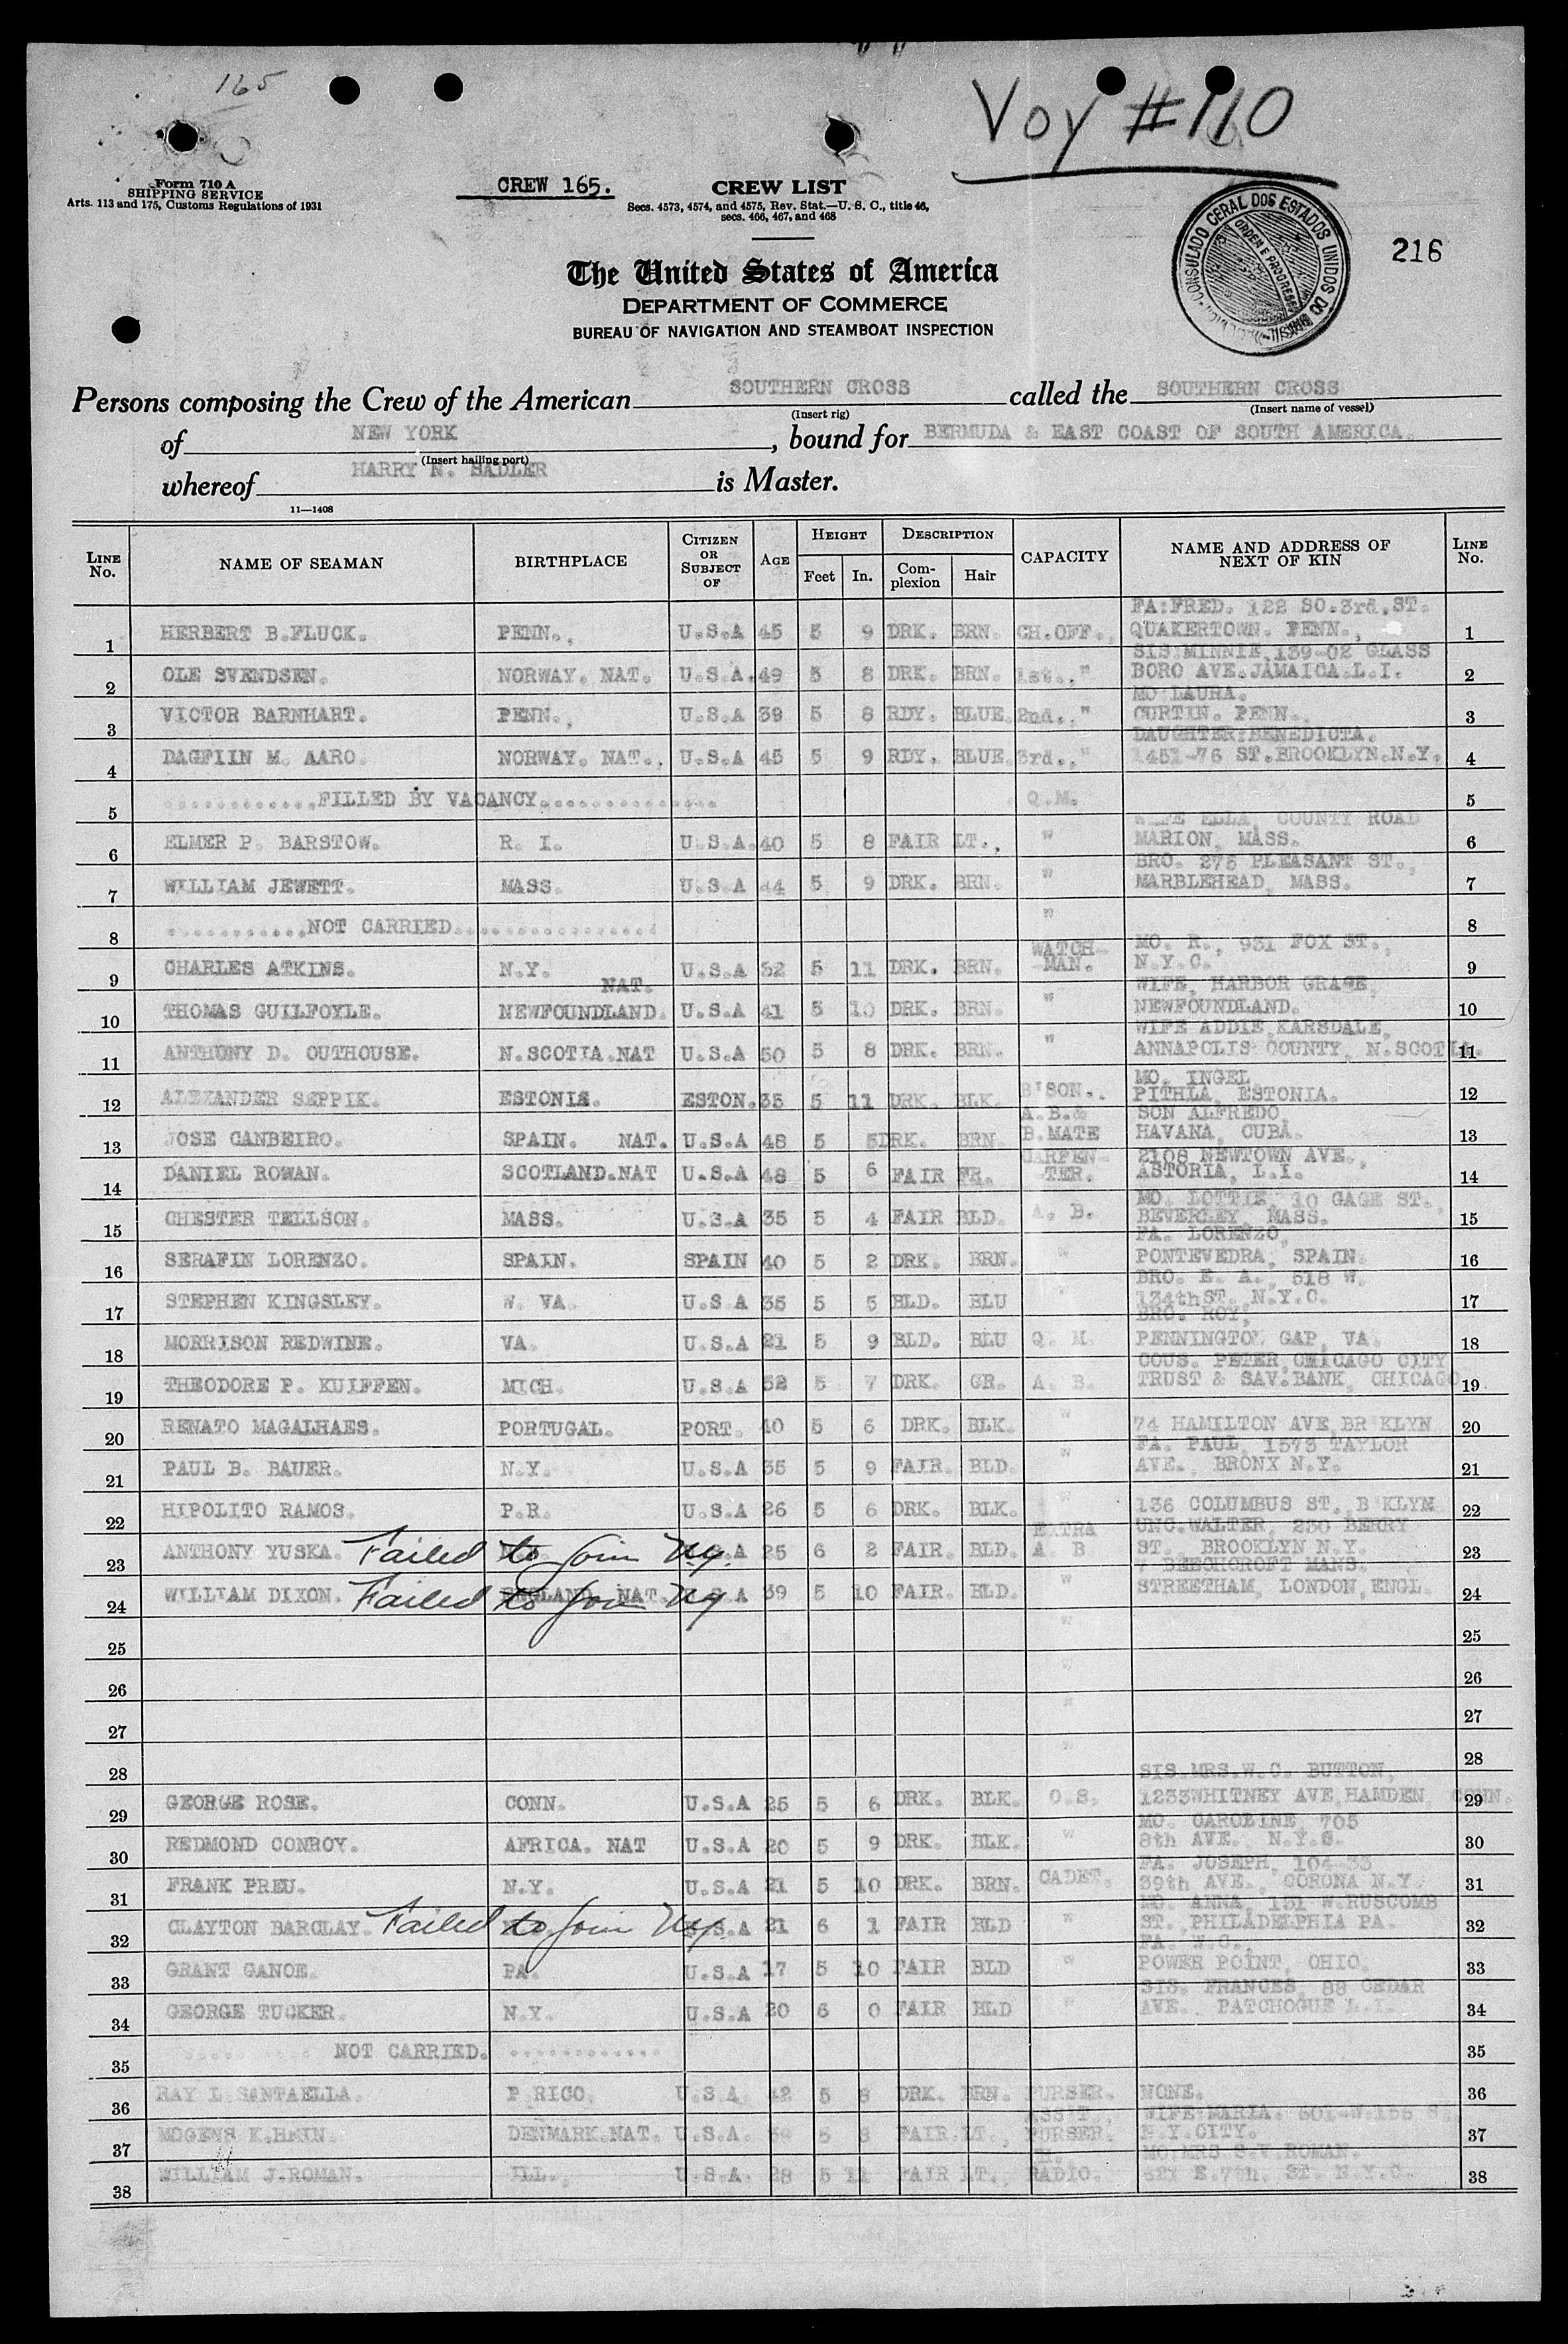 165
Voy #110
Form 710 A
SHIPPING SERVICE
Arts. 113 and 175, Customs Regulations of 1931
CREW 165.
CREW LIST
Secs. 4573, 4574, and 4575, Rev. Stat.—U. S. C., title 46,
secs. 466, 467, and 468
CONSULADO GERAL DOS ESTADOS UNIDOS DO
ORDEM E PROGRESSO
216
The United States of America
DEPARTMENT OF COMMERCE
BUREAU OF NAVIGATION AND STEAMBOAT INSPECTION
Persons composing the Crew of the American SOUTHERN CROSS called the SOUTHERN CROSS
(Insert rig) (Insert name of vessel)
of NEW YORK, bound for BERMUDA & EAST COAST OF SOUTH AMERICA.
(Insert hailing port)
whereof HARRY N. SADLER is Master.
11—1408
LINE No. NAME OF SEAMAN BIRTHPLACE CITIZEN OR SUBJECT OF AGE HEIGHT Feet In. DESCRIPTION Complexion Hair CAPACITY NAME AND ADDRESS OF NEXT OF KIN LINE No.
FA:FRED. 122 SO.3rd.ST.
1 HERBERT B.FLUCK. PENN., U.S.A 45 5 9 DRK. BRN. CH.OFF., QUAKERTOWN. PENN., 1
SIS:MINNIE,139-02 GLASS
2 OLE SVENDSEN. NORWAY. NAT. U.S.A. 49 5 8 DRK. BRN. 1st.," BORO AVE.JAMAICA.L.I. 2
MO:LAURA.
3 VICTOR BARNHART. PENN., U.S.A 39 5 8 RDY. BLUE. 2nd.," CURTIN. PENN., 3
DAUGHTER:BENEDICTA.
4 DAGFIIN M. AARO. NORWAY. NAT., U.S.A 45 5 9 RDY. BLUE. 3rd.," 1451-76 ST.BROOKLYN.N.Y. 4
5 ............FILLED BY VACANCY.............. Q.M. 5
WIFE ELLA, COUNTY ROAD
6 ELMER P. BARSTOW. R. I. U.S.A. 40 5 8 FAIR LT., " MARION, MASS. 6
BRO. 275 PLEASANT ST.,
7 WILLIAM JEWETT. MASS. U.S.A 44 5 9 DRK. BRN. " MARBLEHEAD, MASS. 7
8 ...........NOT CARRIED................ " 8
WATCH- MO. R., 931 FOX ST.,
9 CHARLES ATKINS. N.Y. U.S.A 32 5 11 DRK. BRN. MAN. N.Y.C. 9
NAT. WIFE, HARBOR GRACE,
10 THOMAS GUILFOYLE. NEWFOUNDLAND. U.S.A 41 5 10 DRK. BRN. " NEWFOUNDLAND. 10
WIFE ADDIE,KARSDALE,
11 ANTHONY D. OUTHOUSE. N.SCOTIA.NAT U.S.A 50 5 8 DRK. BRN. " ANNAPOLIS COUNTY, N.SCOTIA. 11
MO. INGEL,
12 ALEXANDER SEPPIK. ESTONIA. ESTON. 35 5 11 DRK. BLK. B'SON.. PITHLA, ESTONIA. 12
A.B.& SON ALFREDO,
13 JOSE CANBEIRO. SPAIN. NAT. U.S.A 48 5 5 DRK. BRN. B.MATE HAVANA, CUBA. 13
CARPEN- 2108 NEWTOWN AVE.,
14 DANIEL ROWAN. SCOTLAND.NAT U.S.A 48 5 6 FAIR FR. TER. ASTORIA, L.I. 14
MO. LOTTIE, 10 GAGE ST.,
15 CHESTER TELLSON. MASS. U.S.A 35 5 4 FAIR BLD. A. B. BEVERLEY, MASS. 15
FA. LORENZO,
16 SERAFIN LORENZO. SPAIN. SPAIN 40 5 2 DRK. BRN. " PONTEVEDRA, SPAIN. 16
BRO. E. A., 518 W.
17 STEPHEN KINGSLEY. W. VA. U.S.A 35 5 5 BLD. BLU " 134thST. N.Y.C. 17
BRO. ROY,
18 MORRISON REDWINE. VA. U.S.A 21 5 9 BLD. BLU Q. M. PENNINGTON GAP, VA. 18
COUS. PETER,CHICAGO CITY
19 THEODORE P. KUIFFEN. MICH. U.S.A 52 5 7 DRK. GR. A. B. TRUST & SAV.BANK, CHICAGO 19
20 RENATO MAGALHAES. PORTUGAL. PORT. 40 5 6 DRK. BLK. " 74 HAMILTON AVE,BR'KLYN 20
FA. PAUL, 1573 TAYLOR
21 PAUL B. BAUER. N.Y. U.S.A 35 5 9 FAIR. BLD. " AVE., BRONX N.Y. 21
22 HIPOLITO RAMOS. P.R. U.S.A 26 5 6 DRK. BLK. " 136 COLUMBUS ST. B'KLYN 22
EXTRA UNC.WALTER, 230 BERRY
23 ANTHONY YUSKA. Failed to Join Ny. S.A 25 6 2 FAIR. BLD. A. B ST., BROOKLYN N.Y. 23
7 BEECHCROFT MANS.
24 WILLIAM DIXON. Failed to Join Ny ENGLAND. NAT. U.S.A 39 5 10 FAIR. BLD. " STREETHAM, LONDON,ENGL. 24
25 " 25
26 " 26
27 " 27
28 " 28
SIS.MRS.W.C. BUTTON,
29 GEORGE ROSE. CONN. U.S.A 25 5 6 DRK. BLK. O.S. 1233WHITNEY AVE,HAMDEN, CONN. 29
MO. CAROLINE, 705
30 REDMOND CONROY. AFRICA. NAT U.S.A 20 5 9 DRK. BLK. " 8th AVE., N.Y.C. 30
FA. JOSEPH, 104-33
31 FRANK PREU. N.Y. U.S.A 21 5 10 DRK. BRN. CADET. 39th AVE., CORONA N.Y. 31
MO. ANNA, 131 W.RUSCOMB
32 CLAYTON BARCLAY. Failed to Join Ny. U.S.A 21 6 1 FAIR BLD " ST., PHILADELPHIA PA. 32
FA. W.C.,
33 GRANT GANOE. PA. U.S.A 17 5 10 FAIR BLD " POWER POINT, OHIO. 33
SIS. FRANCES, 88 CEDAR
34 GEORGE TUCKER. N.Y. U.S.A 20 6 0 FAIR BLD " AVE., PATCHOGUE L.I. 34
35 NOT CARRIED. ............ 35
36 RAY L SANTAELLA. P.RICO. U.S.A. 42 5 8 DRK. BRN. PURSER. NONE. 36
ASS'T., WIFE:MARIA. 601-W.156 S
37 MOGENS K.HEIN. DENMARK.NAT. U.S.A. 5 8 FAIR.LT., PURSER. N.Y.CITY. 37
MO:MRS S.V.ROMAN.
38 WILLIAM J.ROMAN. ILL., U.S.A. 28 5 11 FAIR LT., RADIO. 521 E.7th. ST. N.Y.C. 38